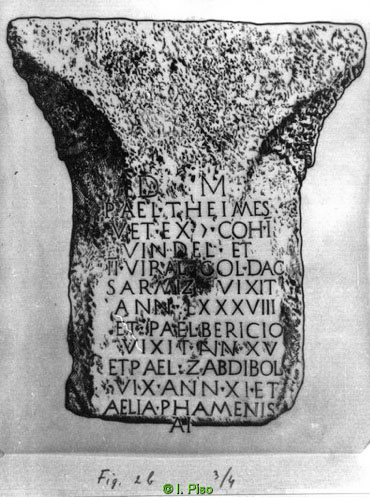 D M
P·AEL·THEIMES
VET·EX ) COH·I
VINDEL· ET
II·VIRAL·COL·DAC
SARMIZ· VIXIT
ANN·LXXXVIII
ET·P·AEL·BERICIO
VIXIT·ANN·XV
ET·P·AEL·ZABDIBOL
VIX·ANN·XI·ET
AELIA·PHAMENIS
AI
Fig. 2b 3/4
© I. Piso